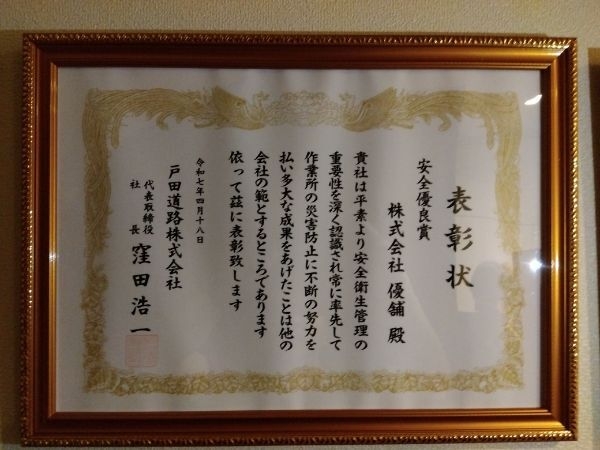 表彰状
安全優良賞
株式会社 優舗 殿
貴社は平素より安全衛生管理の
重要性を深く認識され常に率先して
作業所の災害防止に不断の努力を
払い多大な成果をあげたことは他の
会社の範とするところであります
依って茲に表彰致します
令和七年四月十八日
戸田道路株式会社
代表取締役
社長 窪田浩一